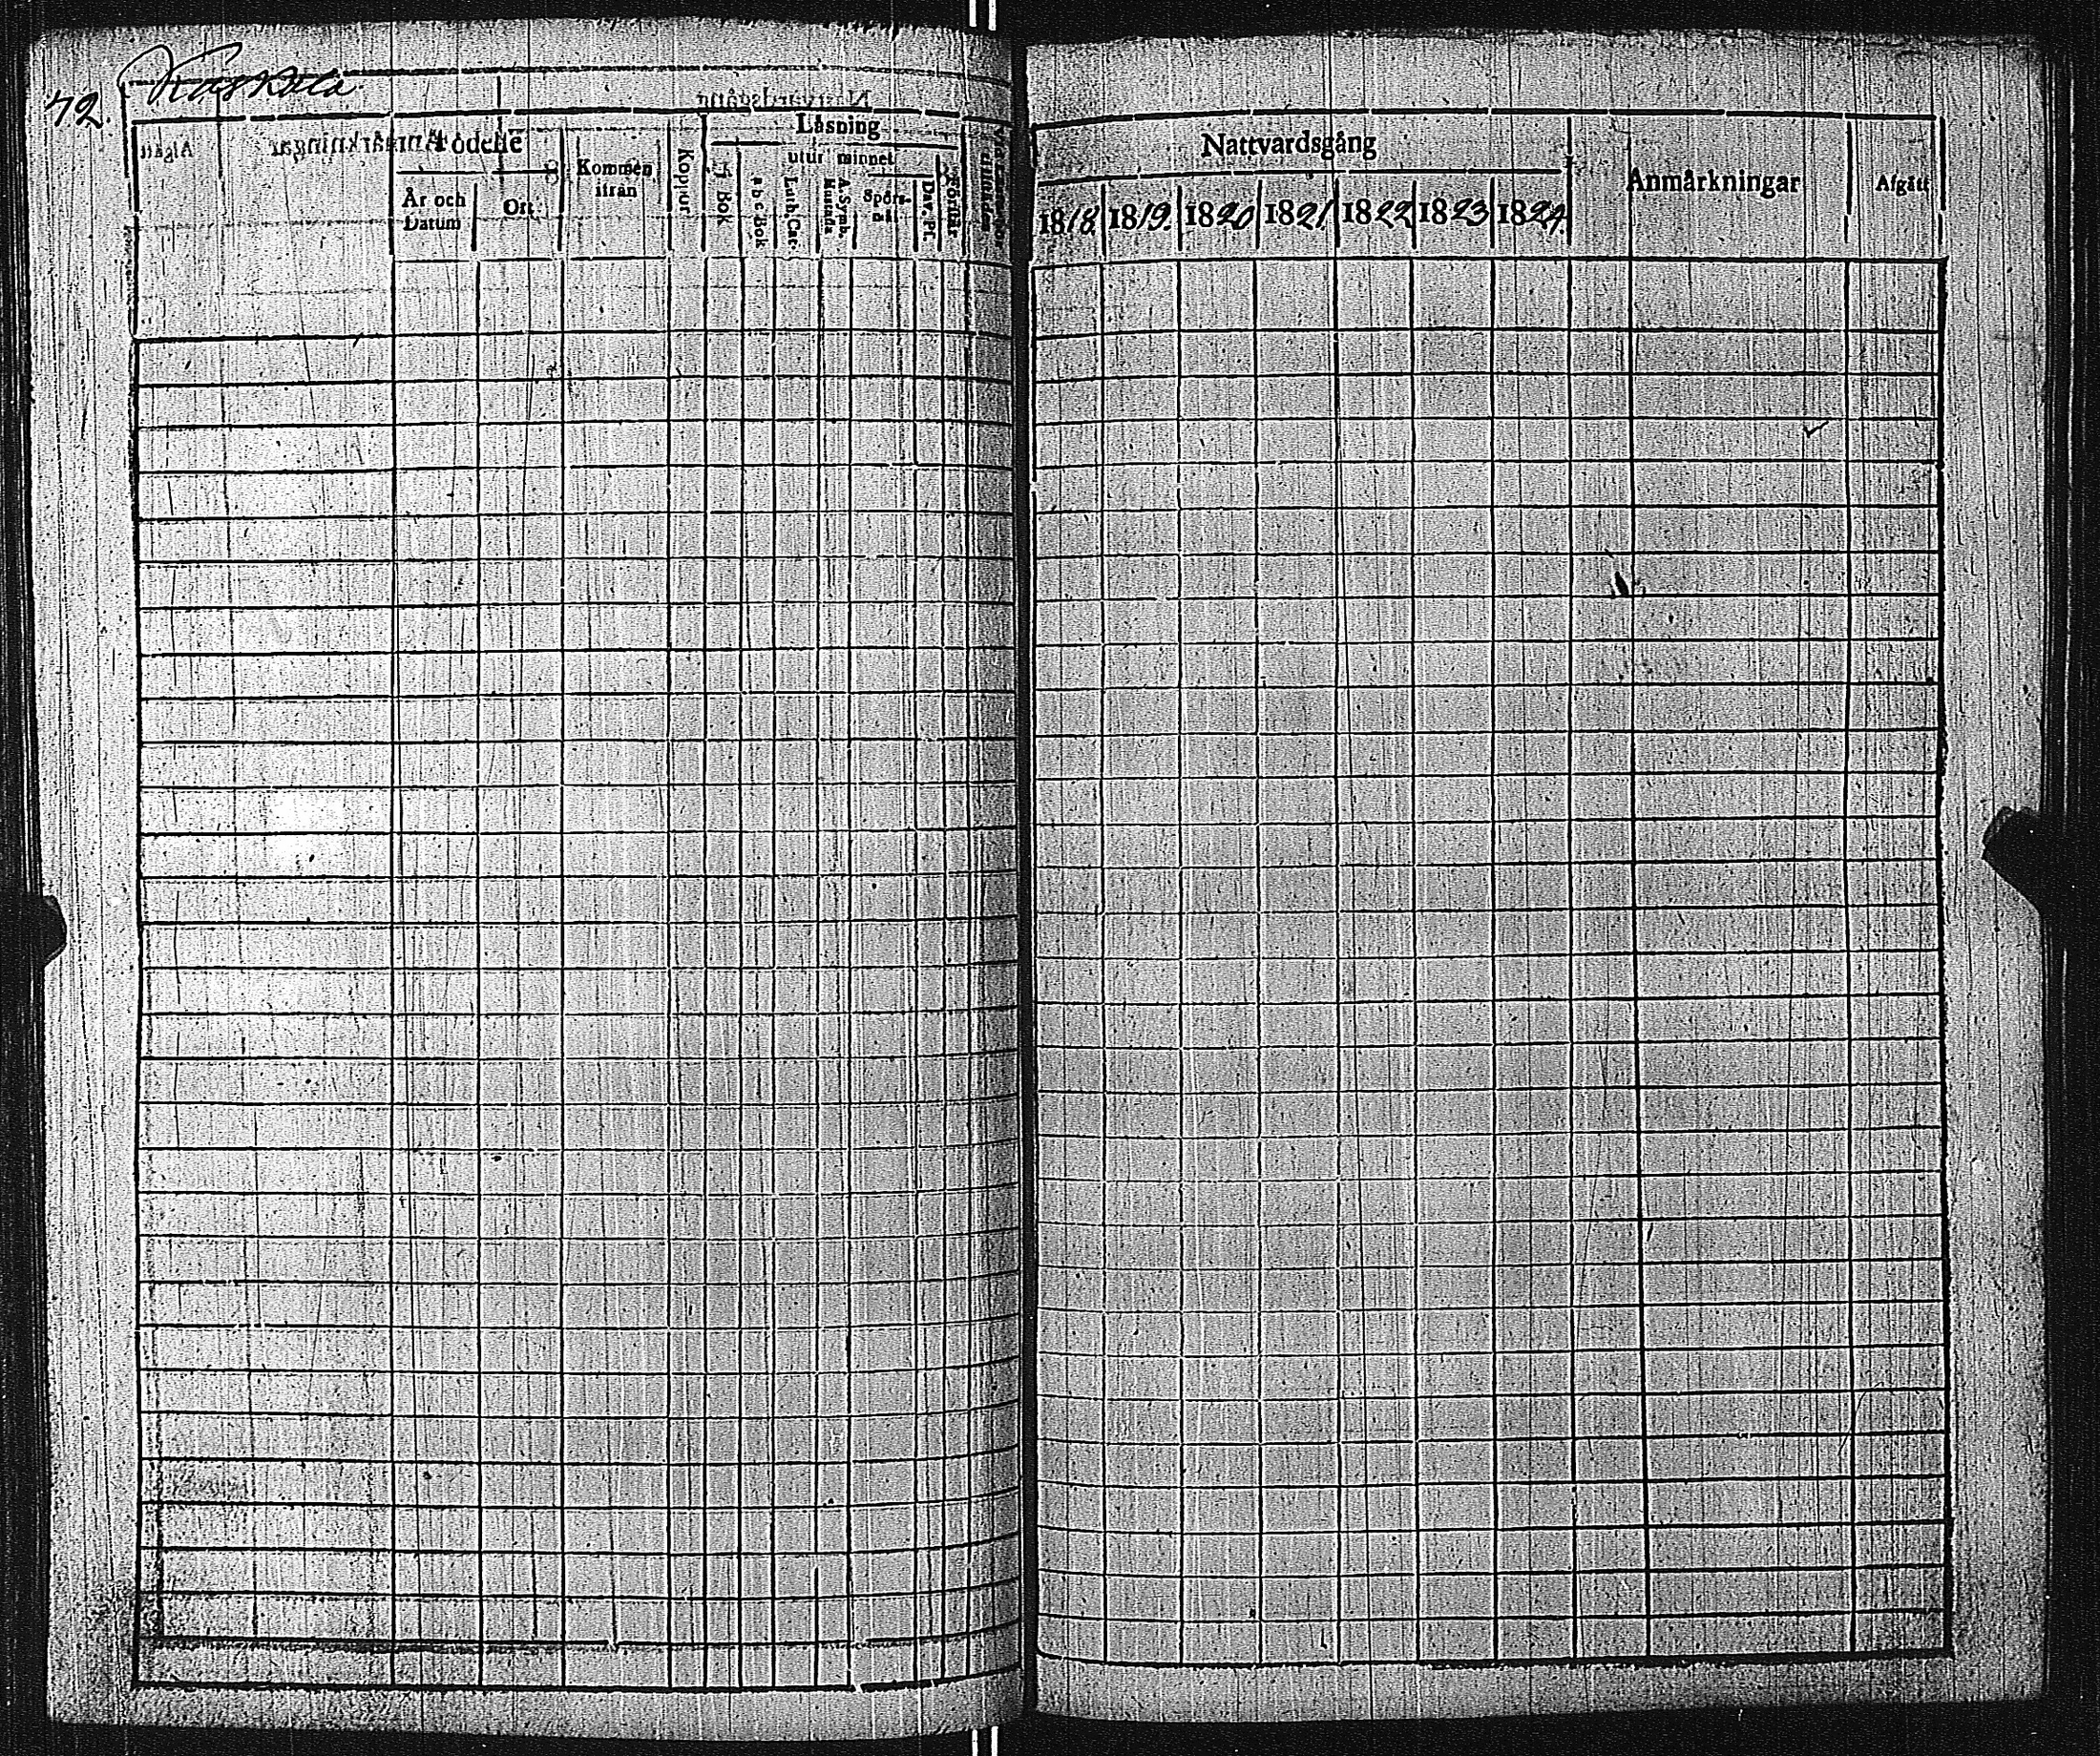 72.
Födelse
År och Datum
Ort
Kommen ifrån
Koppor
Läsning
utur minnet
Bok
a b c Bok
Luth. Cat.
A. Symb.
Hustafla
Spörsmål
Dav. Ps.
Förstår
Nattvardsgång
1818. 1819. 1820 1821 1822 1823 1824.
Anmärkningar
Afgått